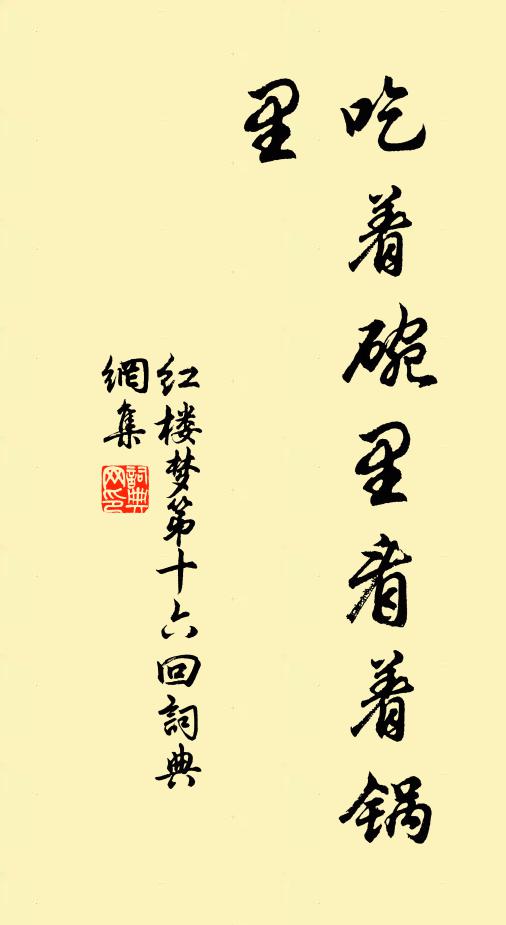 吃着碗里看着锅
里
红楼梦第十六回词典
網集
詞典
网印